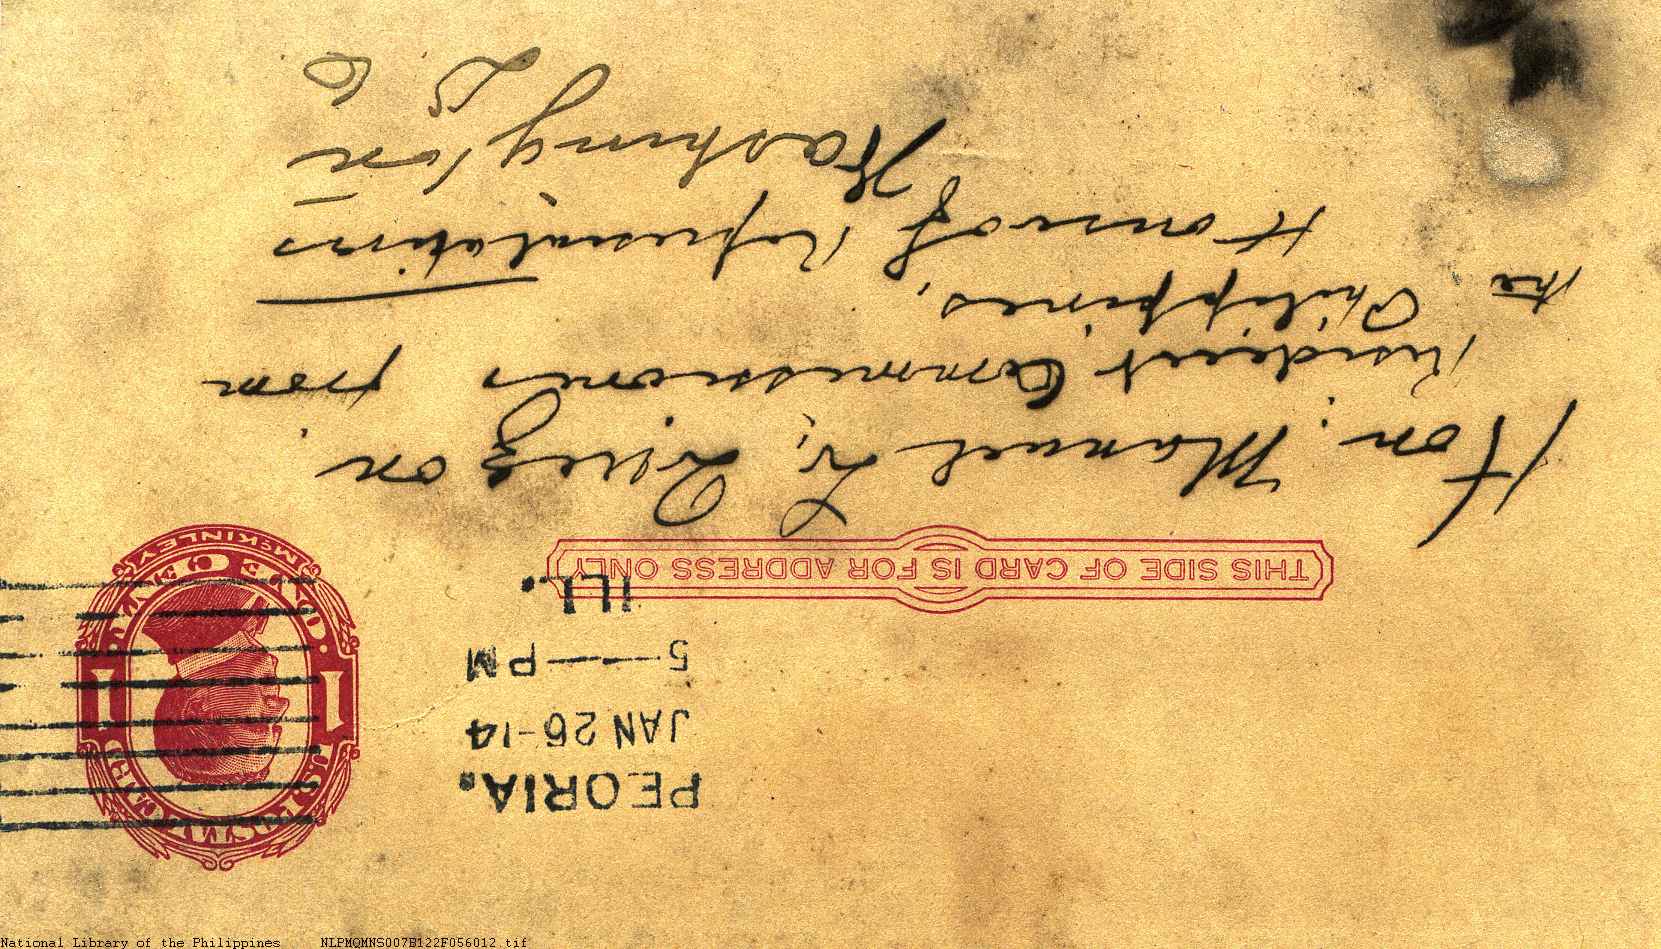 PEORIA.
JAN 26-14
5 — PM
ILL.
U.S. POSTAL CARD
1 1
· ONE CENT ·
McKINLEY
THIS SIDE OF CARD IS FOR ADDRESS ONLY
Hon. Manuel L. Quezon
Resident Commissioner from
the Philippines,
House of Representatives
Washington
D C
National Library of the Philippines NLPMQMNS007B122F056012.tif